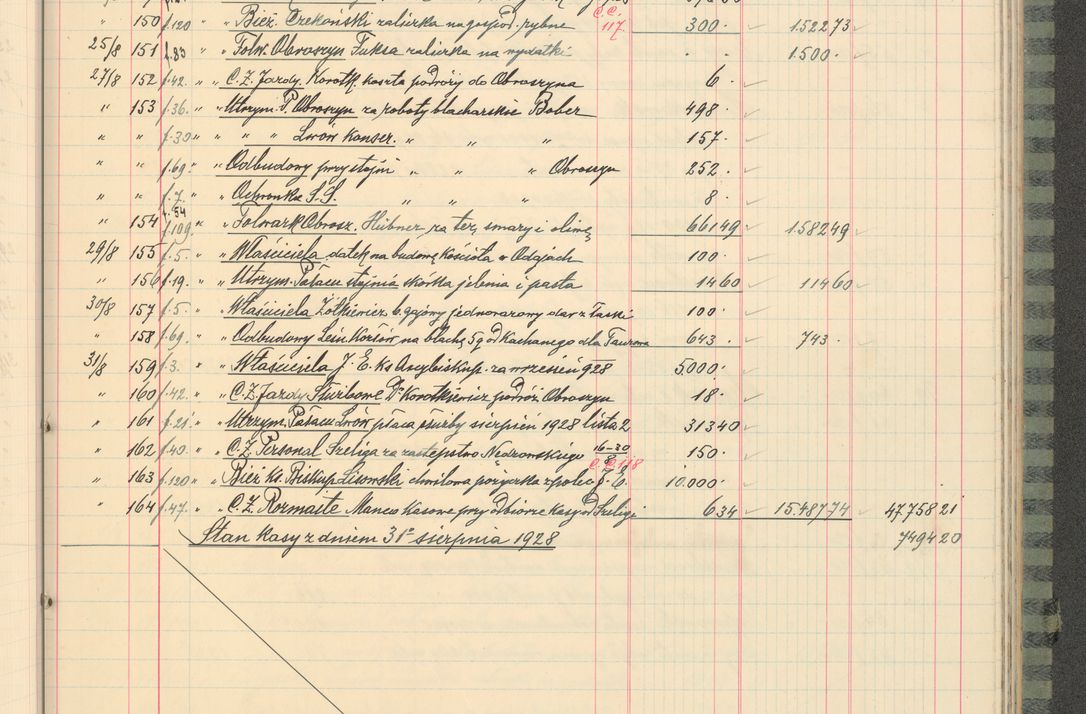 " 150 f.120 " Bież. Orekoński zaliczka na gospod. rybne C.C. 117. 300.- 1.522 73
25/8 151 f.83 " Folw. Obroszyn Fuksa zaliczka na wydatki . . 1500.-
27/8 152 f.42. " " C.Z. Jazdy. Korotk. koszta podróży do Obroszyna 6.-
" 153 f.36. " " Utrzym. P. Obroszyn za roboty blacharskie Bober 498.-
" " f.30 " " " " Lwów Konser. " " " 157.-
" " f.69. " " Odbudowy przy stajni " " " Obroszyn 252.-
" " f.7. " " Ochronka S.S. " " " 8.-
" 154 f.54 f.109. " " Folwark Obrosz. Hübner za ter, smary i oliwę 661 49 1582 49
29/8 155 f.5. " " Właściciela datek na budowę kościoła w 100.-
" 156 f.19. " " Utrzym. Pałacu stajnia skórka jelenia i pasta 14 60 114 60
30/8 157 f.5. " " Właściciela Żółkiewicz b. gajowy jednorazowy dar z łaski 100.-
" 158 f.69. " " Odbudowy Leśn. na blachę 5 g od Kachanego dla 643.- 743.-
31/8 159 f.3. " " Właściciela J. E. Ks Arcybiskup. za wrzesień 928 5.000.-
" 160 f.42. " " C.Z. Jazdy Służbowe Dr Korotkiewicz podróż Obroszyn 18.-
" 161 f.21. " " Utrzym. Pałacu Lwów płaca służby sierpień 1928 lista 2 313 40
" 162 f.40. " " C.Z. Personal Szeliga za zastępstwo Nędzowskiego 16-30/8 150.-
" 163 f.120 " " Bież ks. Biskup Lisowski chwilowa pożyczka z polec J. E. C.C. 118 10.000.-
" 164 f.47. " " C.Z. Rozmaite Manco kasowe przy odbiorze kasy od Szeligi 6 34 15.487 74 47758 21
Stan kasy z dniem 31go sierpnia 1928 7494 20